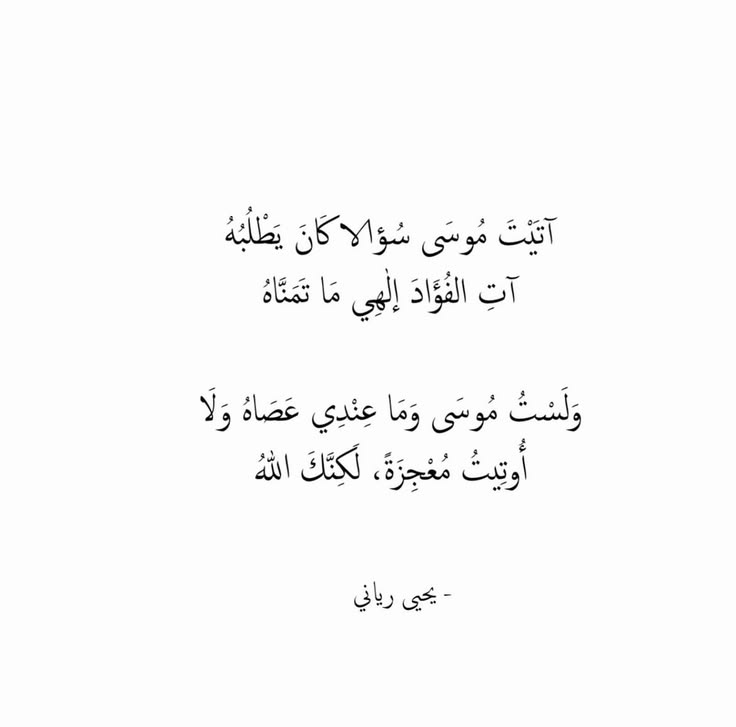 آتَيْتَ مُوسَى سُؤالا كَانَ يَطْلُبُهُ
آتِ الفُؤَادَ إلٰهِي مَا تَمَنَّاهُ
وَلَسْتُ مُوسَى وَمَا عِنْدِي عَصَاهُ وَلَا
أُوتِيتُ مُعْجِزَةً، لَكِنَّكَ اللهُ
- يحيى رياني